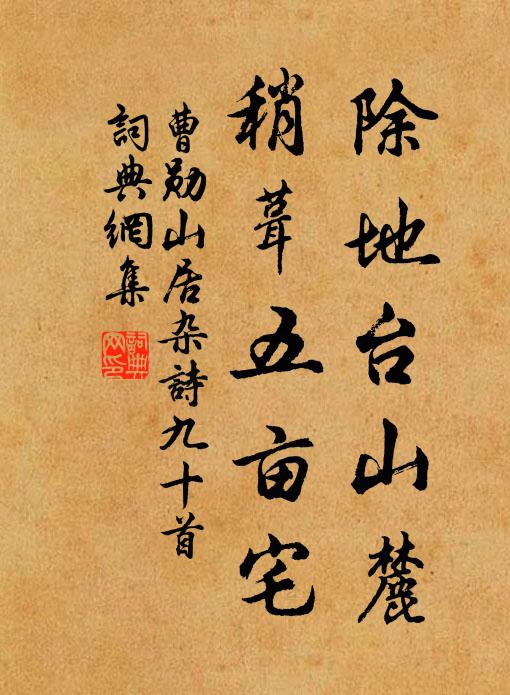 除地台山麓
稍葺五亩宅
曹勋山居杂詩九十首
詞典網集
詞典网印